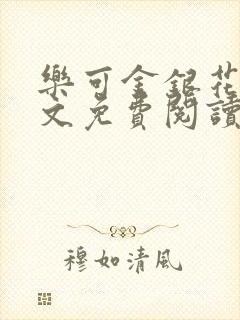 樂可金銀花
文免費閱讀
穆如清風